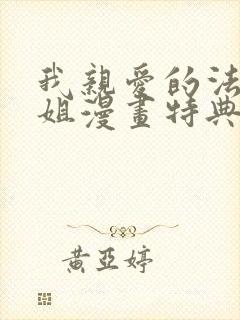 我親愛的法
姐漫畫特典
黃亞婷